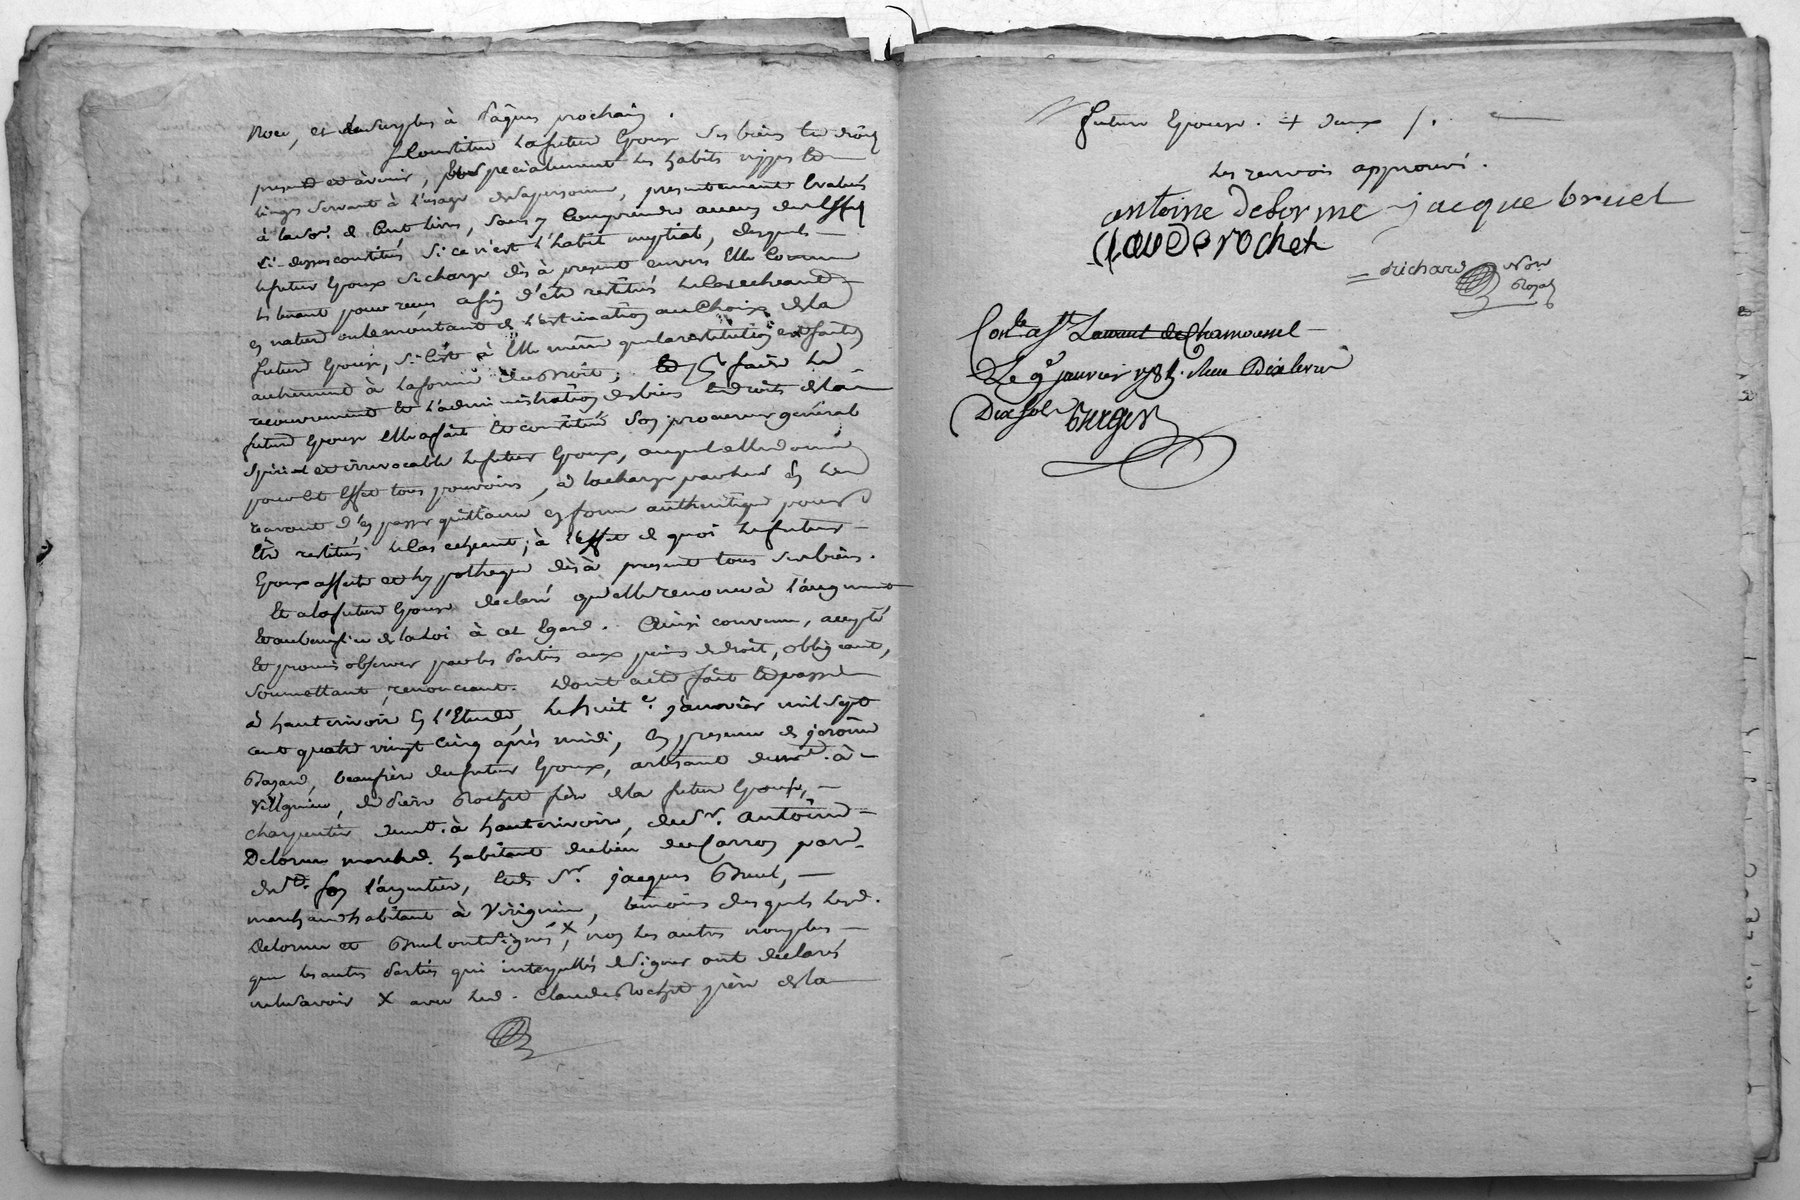 Noel, et le surplus à Pâques prochain.
Se Constitue la future Epouse ses biens et droits
presents et à venir, et specialement les habits nippes et
linges servant à l'usage de sa personne, presentement Evalués
à la so. de Cent livres, sans y Comprendre aucuns des Effets
ci-dessus constitués si ce n'est l'habit nuptial, desquels
le futur Epoux se charge dès à present envers Elle Comme
les tenant pour reçus afin d'être restitués le Cas echeant
en nature ou le montant de l'estimation au Choix de la
future Epouse, si C'est à Elle même que la restitution est faite
autrement à la forme du Droit; Et p.r faire le
recouvrement et l'administration des biens et droits de la
future Epouse Elle a fait et constitué son procureur général
spécial et irrevocable le futur Epoux, auquel elle donne
pour cet Effet tous pouvoirs, à la charge par lui en les
recevant d'en passer quittance en forme authentique pour
Etre restitués le Cas echeant; à l'effet de quoi le futur
Epoux affecte et hypotheque dès à present tous ses biens.
Et a la future Epouse declaré qu'elle renonce à l'augment
et au benefice de la Loi à cet Egard. Ainsi convenu, accepté
et promis observer par les Parties aux peines de droit, obligeant,
soumettant, renonceant. Dont acte fait et passé
à hauterivoire en l'Etude, le huit.e janvier mil sept
cent quatre vingt Cinq après midi, en presence de jerôme
beaufrère du futur Epoux, artisant demt. à
de Pierre Rochet frère de la future Epouse,
charpentier demt. à hauterivoire, de Sr. Antoine
Delorme marchd. habitant du lieu de Carron par.
de St. foy l'argentiere, et de Sr. jacques Bruel,
marchand habitant à Virignieu, temoins desquels lesd.
Delorme et Bruel ont signés X, non les autres non plus
que les autres Parties qui interpellés de signer ont declarés
ne le savoir X avec led. Claude Rochet père de la
future Epouse. + deux /.
Les renvois approuvé.
antoine delorme jacque bruel
Claude rochet
Richard Not. Royal
Conlé a St Laurent de Chamousset
Le 9e janvier 1785. Reçu Dix livres
Dix sols